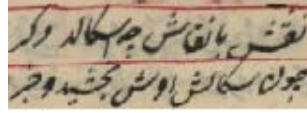 نقش با نقاش چون اسکالد دگر
چون سکالش اوش بخشید و خبر